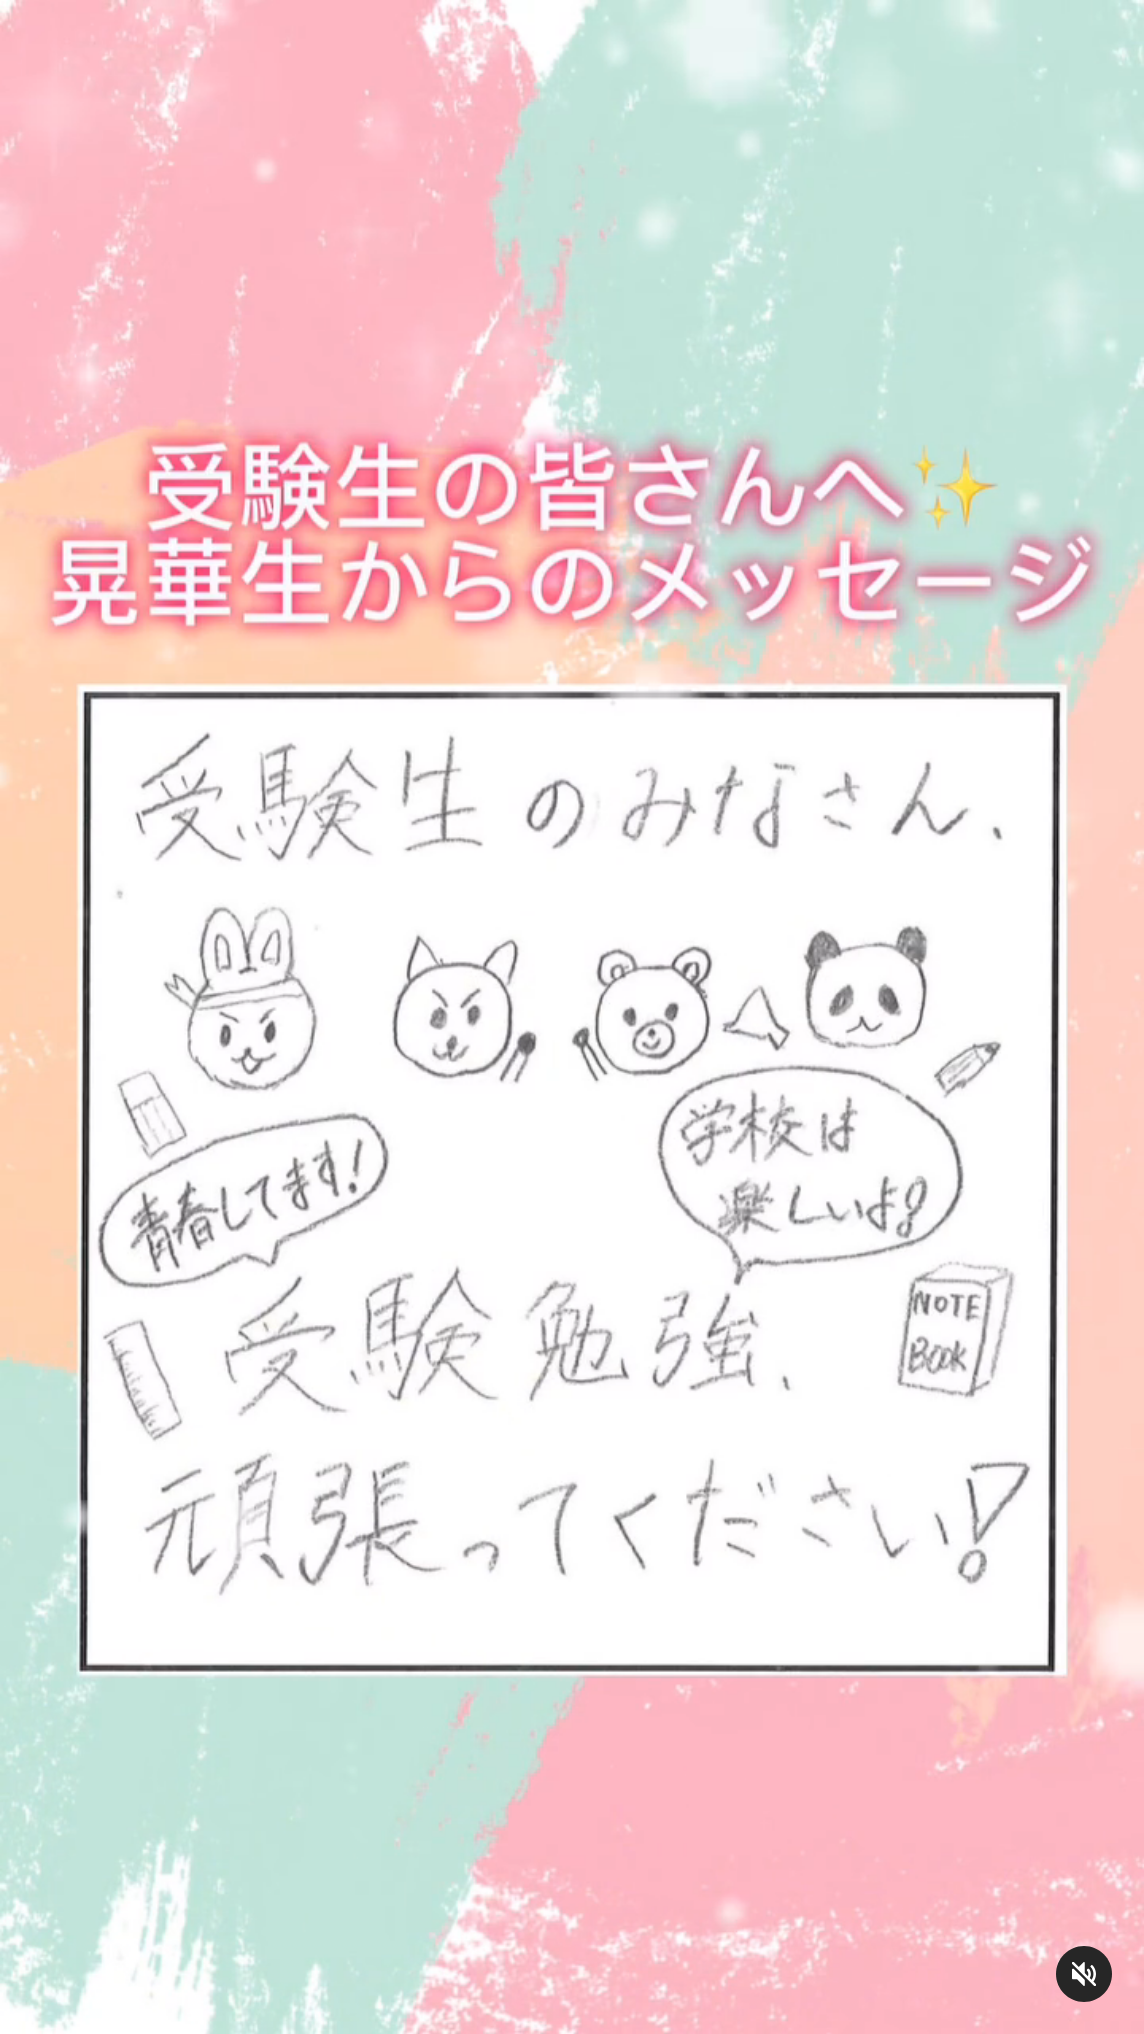 受験生の皆さんへ✨
晃華生からのメッセージ
受験生のみなさん、
学校は
楽しいよ!
青春してます!
受験勉強、
NOTE
BOOK
頑張ってください!